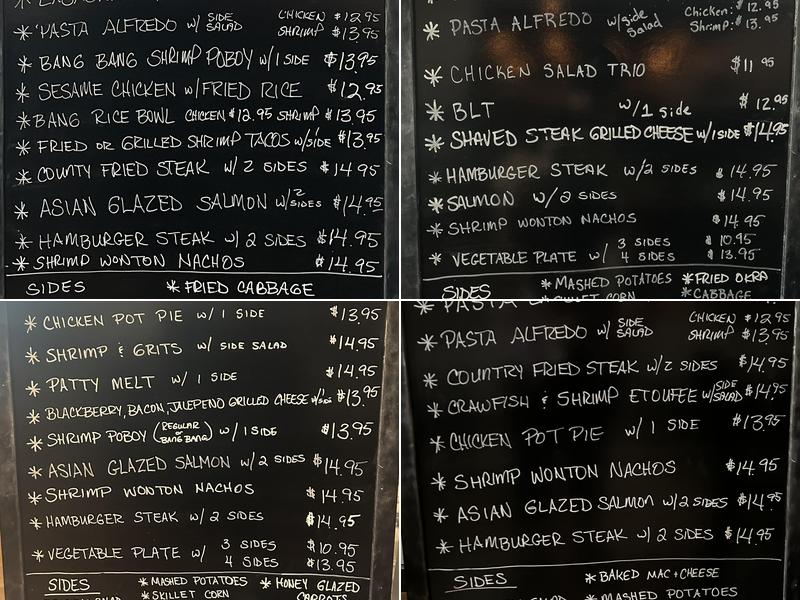 * PASTA ALFREDO w/ SIDE SALAD CHICKEN $12.95 SHRIMP $13.95
* BANG BANG SHRIMP POBOY w/1 SIDE $13.95
* SESAME CHICKEN w/FRIED RICE $12.95
* BANG RICE BOWL CHICKEN $12.95 SHRIMP $13.95
* FRIED OR GRILLED SHRIMP TACOS w/1 SIDE $13.95
* COUNTY FRIED STEAK w/ 2 SIDES $14.95
* ASIAN GLAZED SALMON w/2 SIDES $14.95
* HAMBURGER STEAK w/ 2 SIDES $14.95
* SHRIMP WONTON NACHOS $14.95
SIDES * FRIED CABBAGE
* PASTA ALFREDO w/side Salad Chicken: $12.95 Shrimp: $13.95
* CHICKEN SALAD TRIO $11.95
* BLT w/1 side $12.95
* SHAVED STEAK GRILLED CHEESE w/1 SIDE $14.95
* HAMBURGER STEAK w/2 SIDES $14.95
* SALMON w/2 SIDES $14.95
* SHRIMP WONTON NACHOS $14.95
* VEGETABLE PLATE w/ 3 SIDES $10.95
4 SIDES $13.95
SIDES * MASHED POTATOES * FRIED OKRA
* SKILLET CORN * CABBAGE
* CHICKEN POT PIE w/ 1 SIDE $13.95
* SHRIMP & GRITS w/ SIDE SALAD $14.95
* PATTY MELT w/ 1 SIDE $14.95
* BLACKBERRY, BACON, JALEPENO GRILLED CHEESE w/1 SIDE $13.95
* SHRIMP POBOY (REGULAR OR BANG BANG) w/ 1 SIDE $13.95
* ASIAN GLAZED SALMON w/ 2 SIDES $14.95
* SHRIMP WONTON NACHOS $14.95
* HAMBURGER STEAK w/ 2 SIDES $14.95
* VEGETABLE PLATE w/ 3 SIDES $10.95
4 SIDES $13.95
SIDES * MASHED POTATOES * HONEY GLAZED CARROTS
* SKILLET CORN
PASTA
* PASTA ALFREDO w/ SIDE SALAD CHICKEN $12.95 SHRIMP $13.95
* COUNTRY FRIED STEAK w/2 SIDES $14.95
* CRAWFISH & SHRIMP ETOUFEE w/SIDE SALAD $14.95
* CHICKEN POT PIE w/ 1 SIDE $13.95
* SHRIMP WONTON NACHOS $14.95
* ASIAN GLAZED SALMON w/2 SIDES $14.95
* HAMBURGER STEAK w/ 2 SIDES $14.95
SIDES * BAKED MAC + CHEESE
* MASHED POTATOES